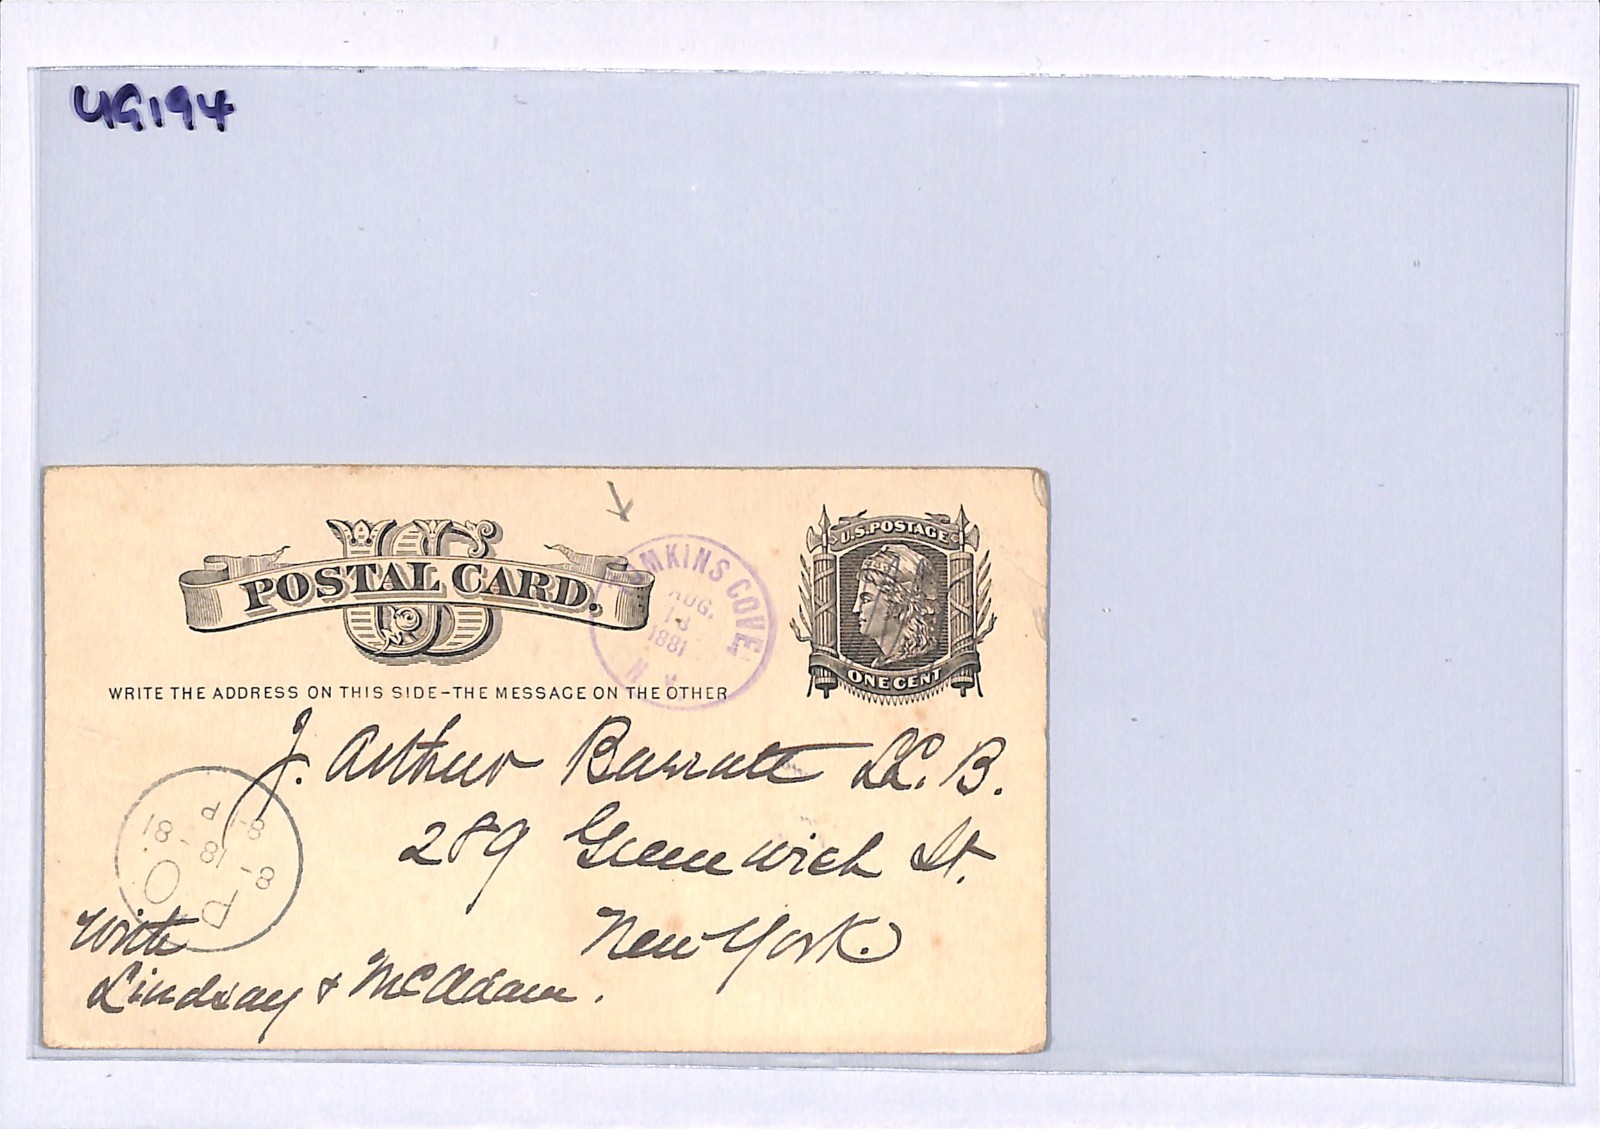 UG194
US
POSTAL CARD.
MKINS COVE
AUG.
1881
N
U.S. POSTAGE
ONE CENT
WRITE THE ADDRESS ON THIS SIDE-THE MESSAGE ON THE OTHER
J. Arthur Barratt LL. B.
289 Greenwich St.
New York.
8-1 P
8-18-81
P O
Write
Lindsay & McAdam.